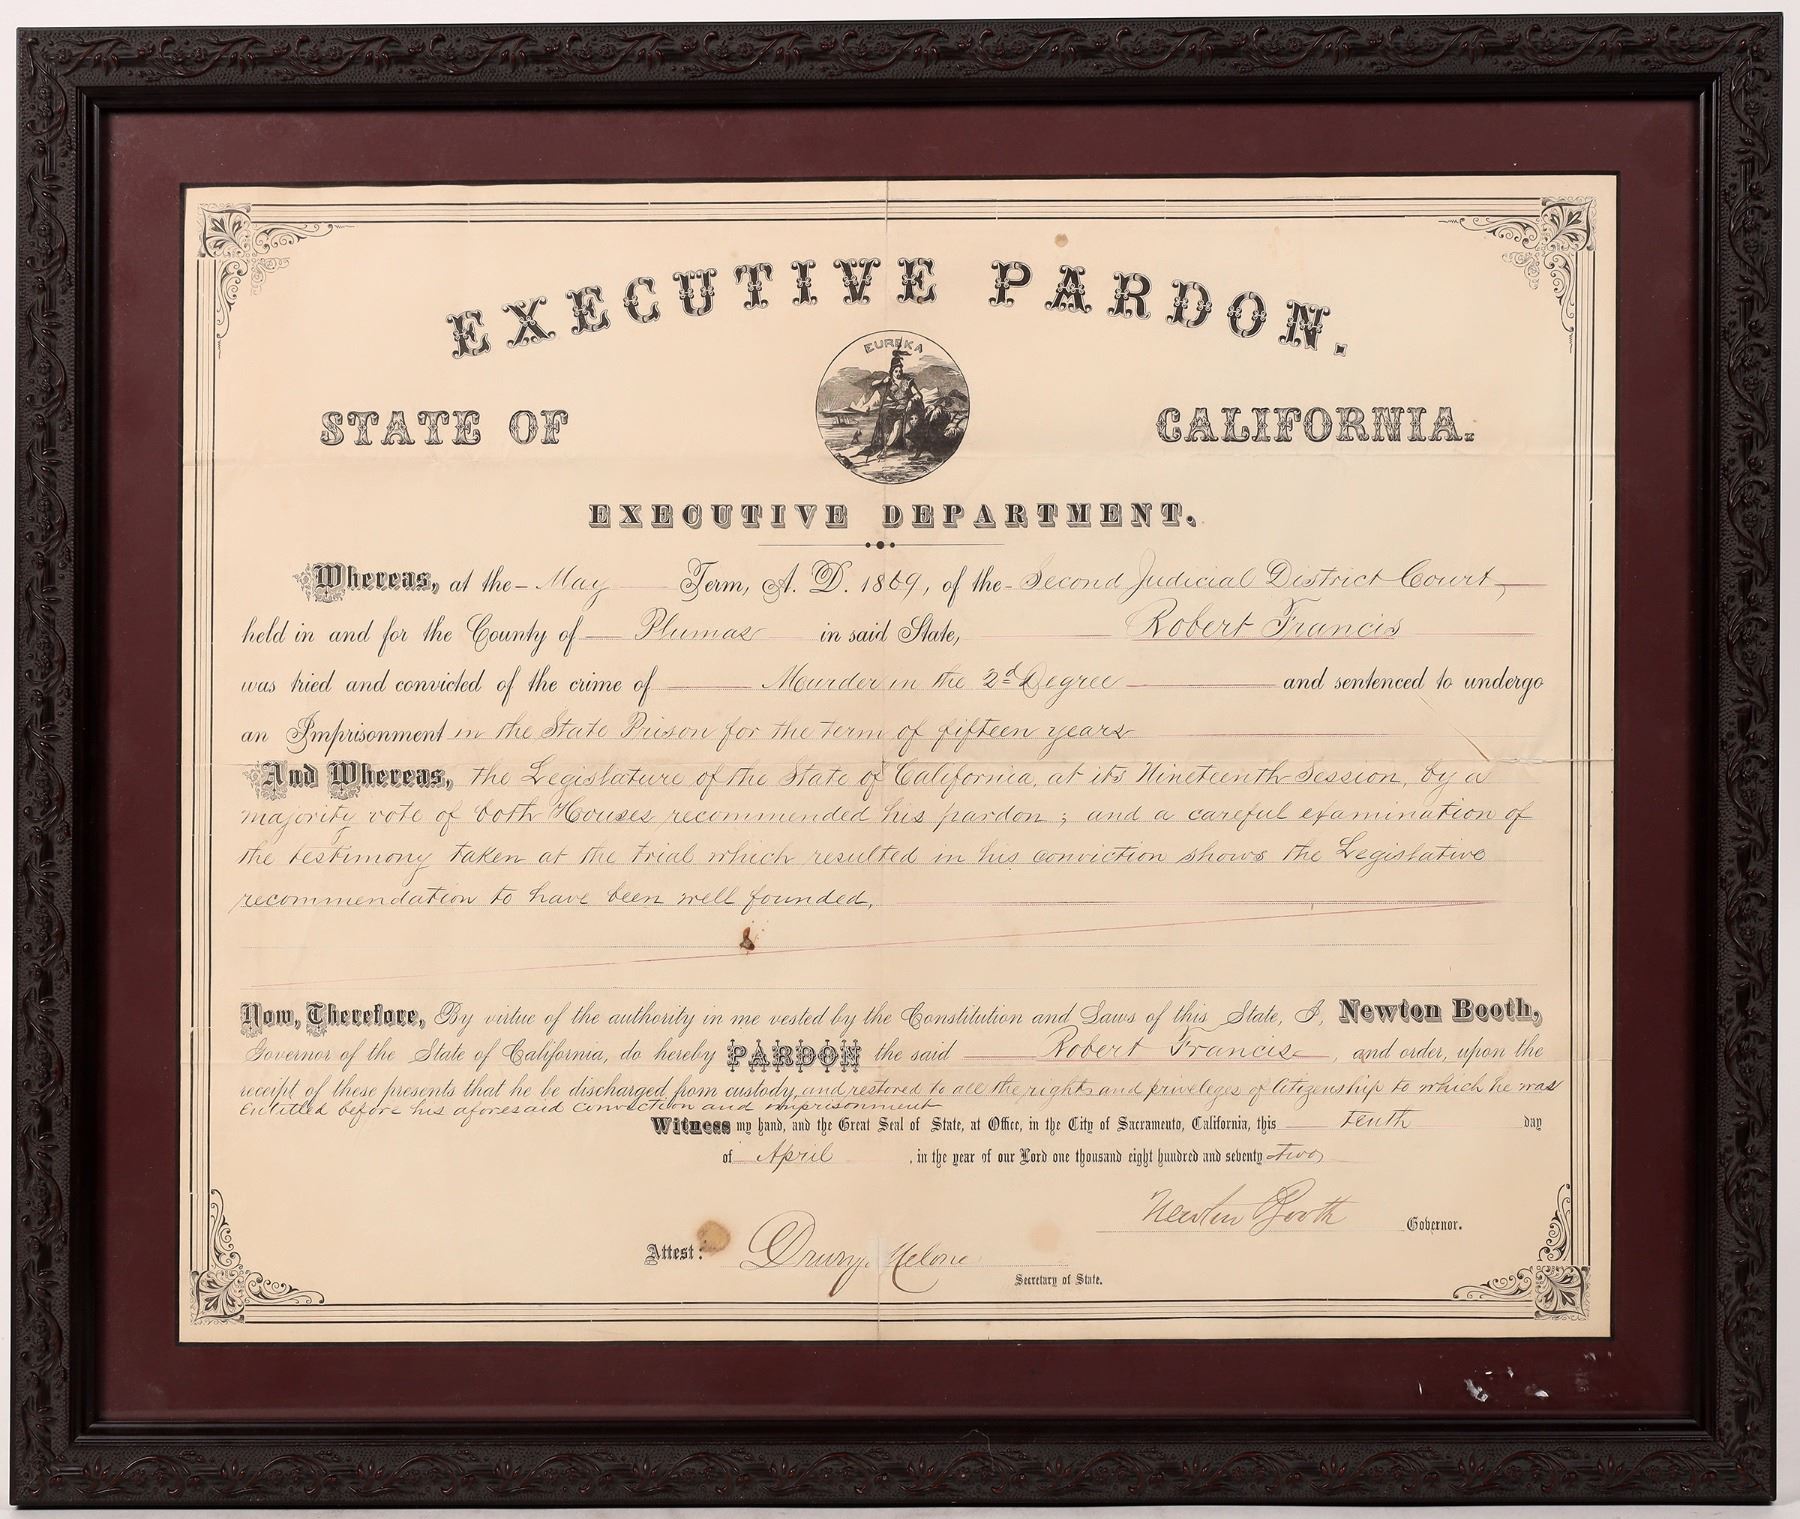 EXECUTIVE PARDON.
EUREKA
STATE OF CALIFORNIA.
EXECUTIVE DEPARTMENT.
Whereas, at the May Term, A. D. 1869, of the Second Judicial District Court,
held in and for the County of Plumas in said State, Robert Francis
was tried and convicted of the crime of Murder in the 2d Degree and sentenced to undergo
an Imprisonment in the State Prison for the term of fifteen years
And Whereas, the Legislature of the State of California, at its Nineteenth Session, by a
majority vote of both Houses recommended his pardon; and a careful examination of
the testimony taken at the trial which resulted in his conviction shows the Legislative
recommendation to have been well founded.
Now, Therefore, By virtue of the authority in me vested by the Constitution and Laws of this State, I, Newton Booth,
Governor of the State of California, do hereby PARDON the said Robert Francis, and order, upon the
receipt of these presents that he be discharged from custody, and restored to all the rights and priveleges of Citizenship to which he was
entitled before his aforesaid conviction and imprisonment
Witness my hand, and the Great Seal of State, at Office, in the City of Sacramento, California, this tenth day
of April, in the year of our Lord one thousand eight hundred and seventy two
Newton Booth Governor.
Attest: Drury Melone
Secretary of State.